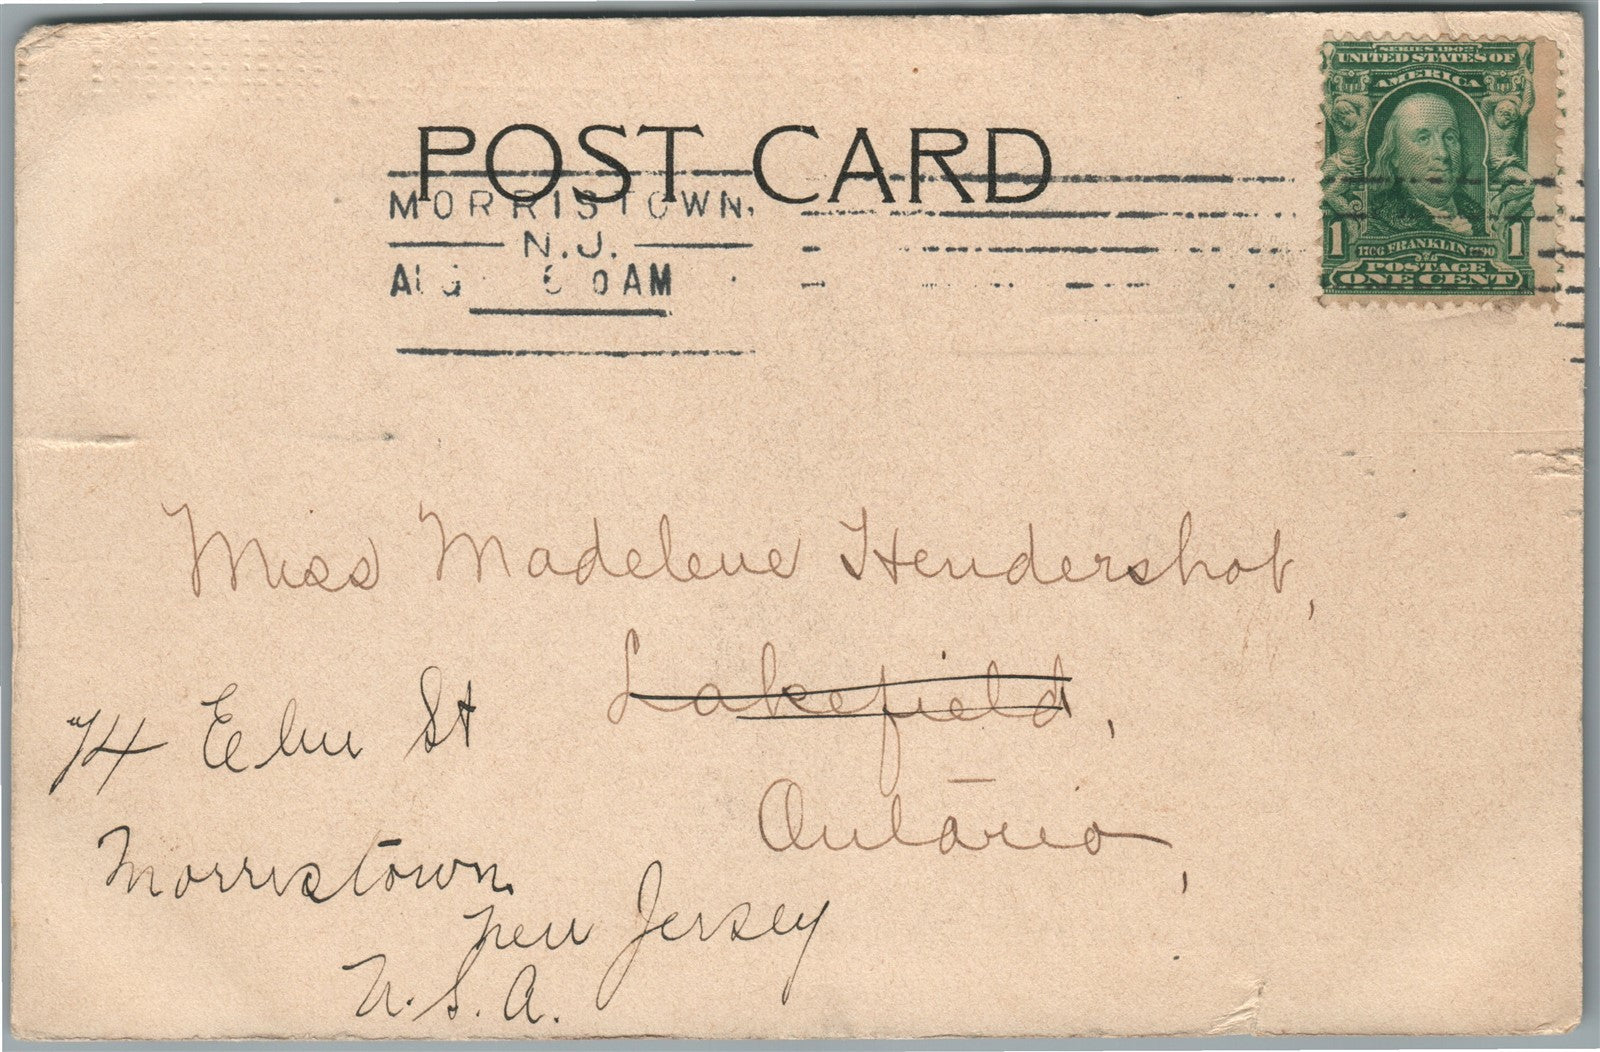 POST CARD
SERIES 1902
UNITED STATES OF
AMERICA
1 1
1706 FRANKLIN 1790
POSTAGE
ONE CENT
MORRISTOWN,
N.J.
AUG AM
Miss Madelene Hendershot,
Lakefield,
Ontario,
74 Elm St
Morristown
New Jersey
U.S.A.